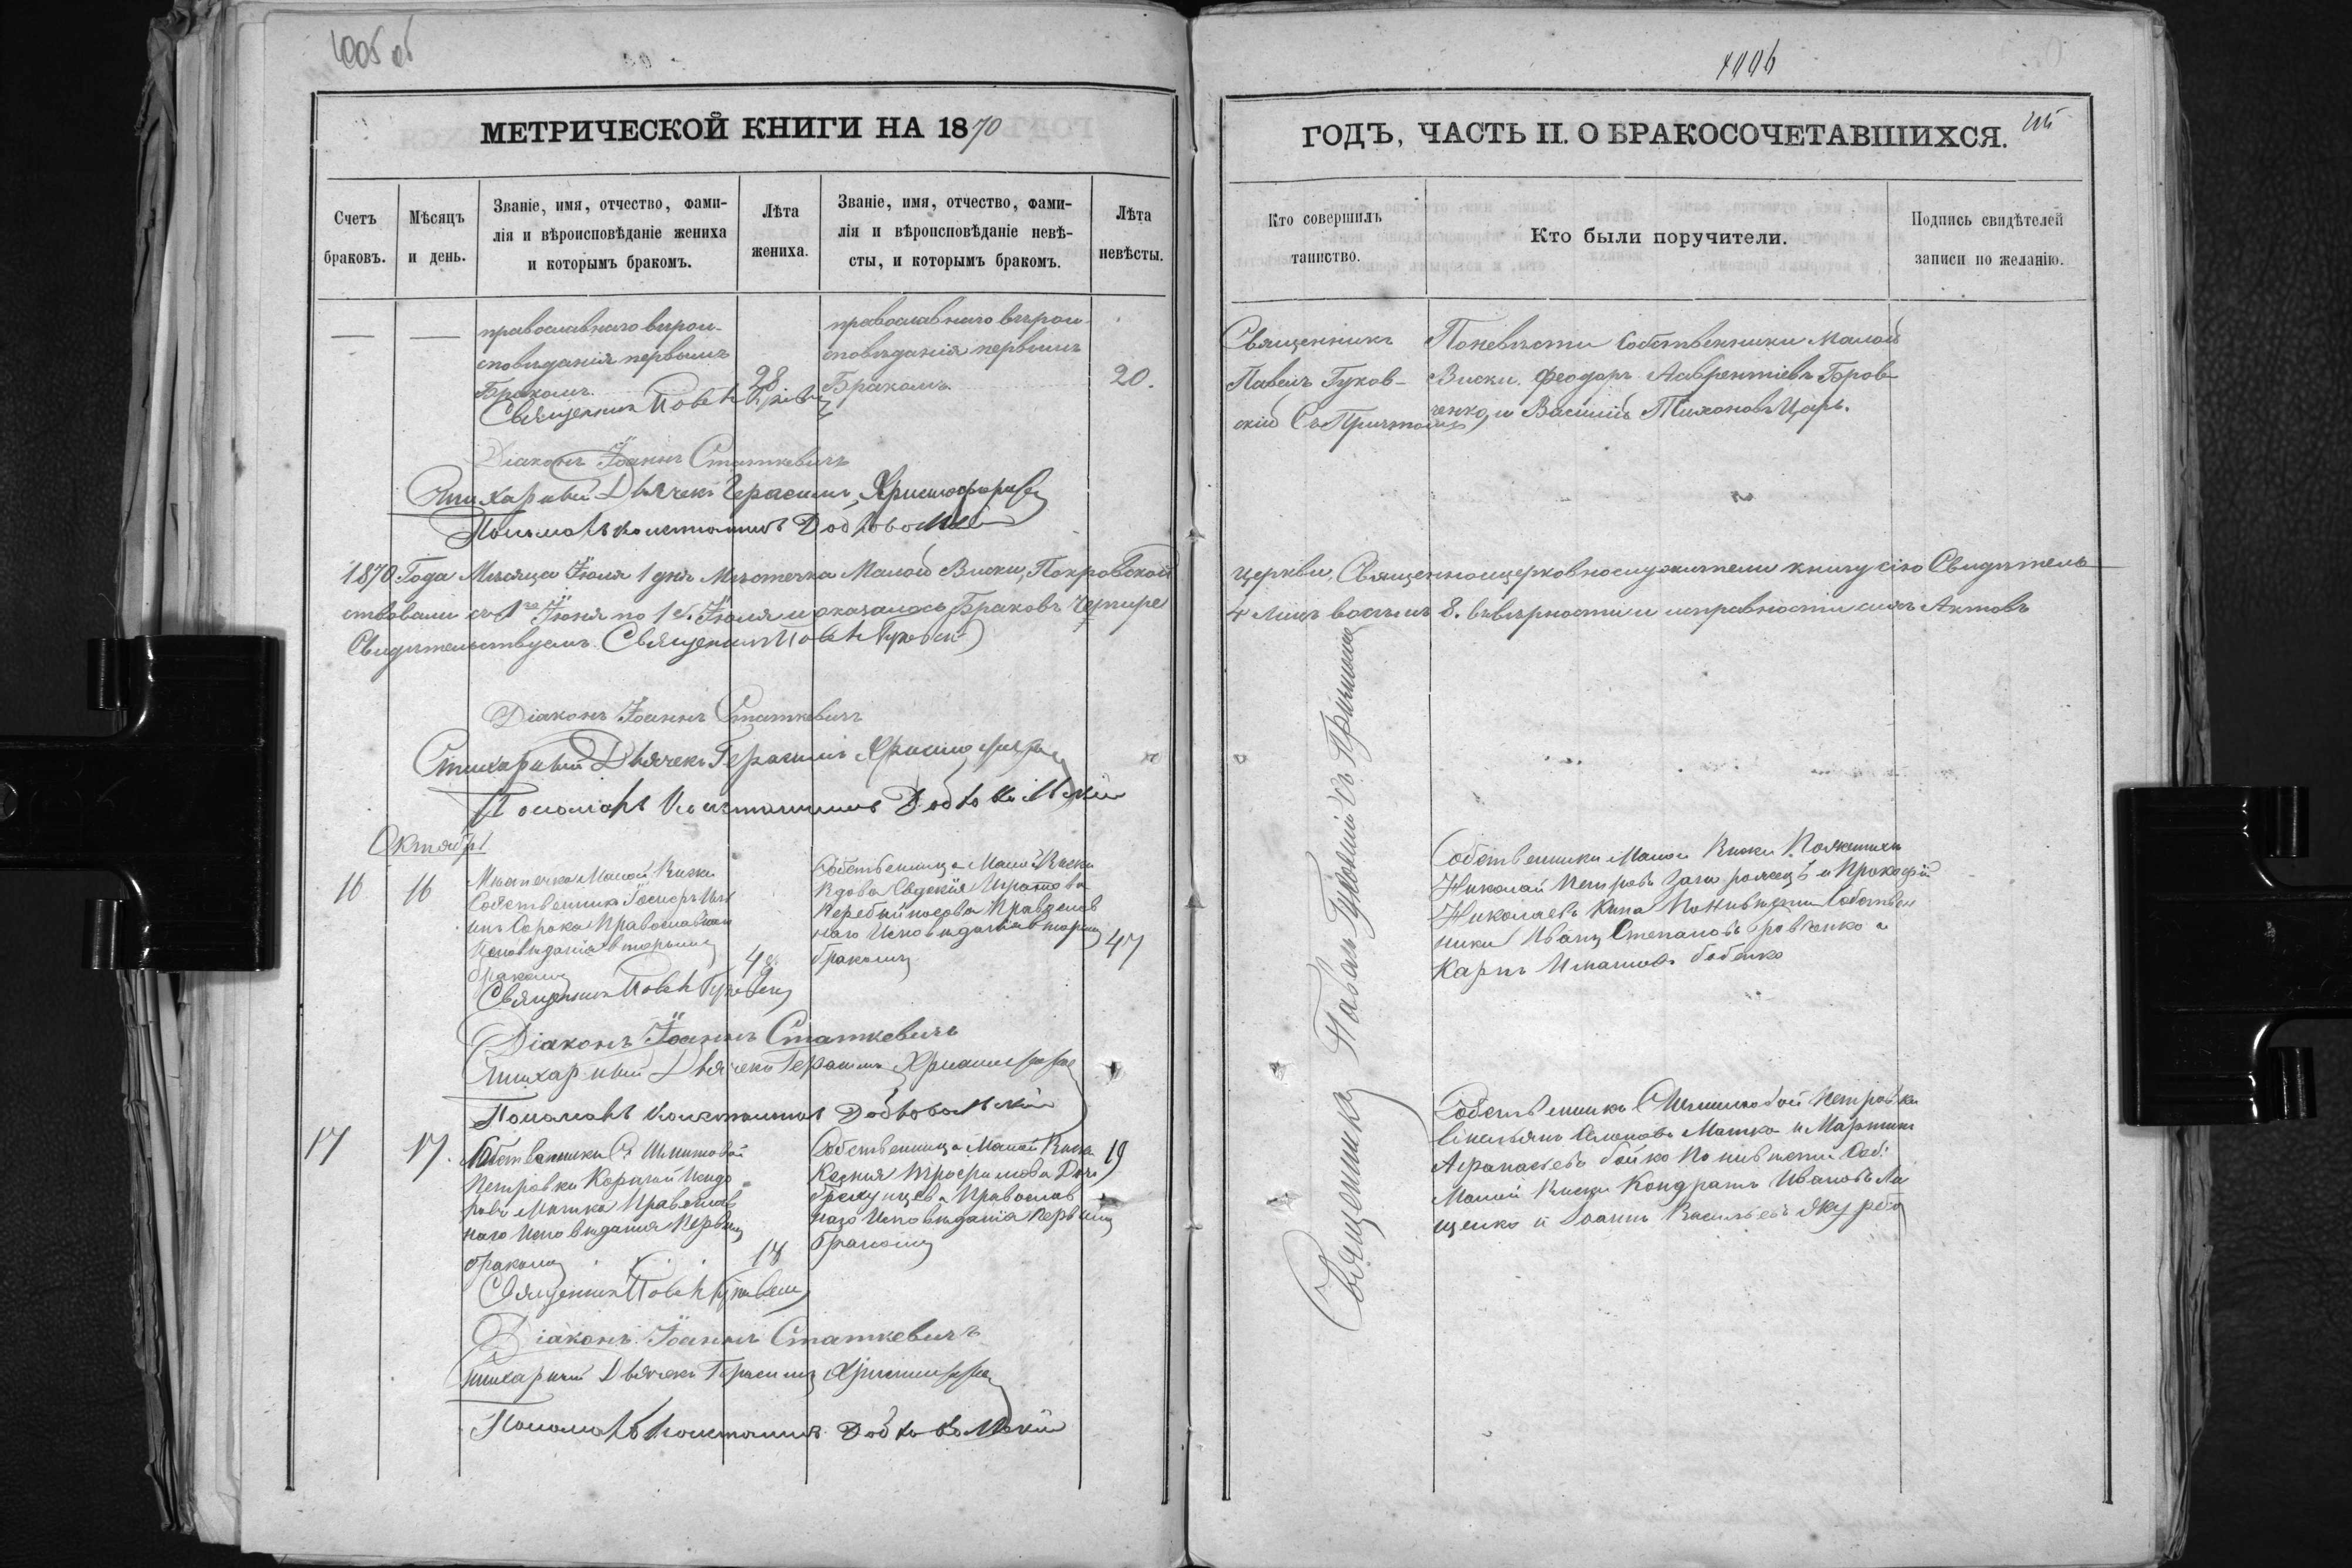 1005 об
1006
МЕТРИЧЕСКОЙ КНИГИ НА 1870
ГОДЪ, ЧАСТЬ II. О БРАКОСОЧЕТАВШИХСЯ.
Счетъ браковъ.
Мѣсяцъ и день.
Званіе, имя, отчество, фами-
лія и вѣроисповѣданіе жениха
и которымъ бракомъ.
Лѣта жениха.
Званіе, имя, отчество, фами-
лія и вѣроисповѣданіе невѣ-
сты, и которымъ бракомъ.
Лѣта невѣсты.
Кто совершилъ
таинство.
Кто были поручители.
Подпись свидѣтелей
записи по желанію.
православнаго вѣрои-
сповѣданія первымъ
Бракомъ.
28
православнаго вѣрои-
сповѣданія первымъ
Бракомъ
20.
Священникъ
Павелъ Гуков-
скій Съ Причтомъ
Поневѣсти Собственники Малой
Виски. Феодоръ Лаврентіевъ Бров-
ченко, и Василій Тихоновъ Царь.
Священникъ Павелъ
Діаконъ Іоаннъ Статкевичъ
Стихарный Дьячекъ Герасимъ Христофоровъ
Пономарь Константинъ
1870 Года Мѣсяца Іюля 1 дня Мѣстечка Малой Виски, Покровской
Церкви, Священноцерковнослужители книгу сію Свидѣтель
ствовали съ 1го Іюня по 1е Іюля и оказалось Браковъ Четыре
4 Лицъ восѣмъ 8. въ вѣрности и исправности сихъ Актовъ
Свидѣтельствуемъ. Священникъ Павелъ Гуковскій
Діаконъ Іоаннъ Статкевичъ
Стихарный Дьячекъ Герасимъ Христофоровъ
Пономарь Константинъ
Октября
16 16
Мѣстечка Малой Виски
Собственникъ
Сорока Православнаго
Исповѣданія вторымъ
бракомъ
48
Собственница Малой Виски
Вдова Евдокія
Православ
наго Исповѣданія вторымъ
бракомъ
47
Собственники Малой Виски По женихи
Николай Петровъ и Прокофій
Николаевъ Кипа По Невѣсти Собствен
ники Иванъ Степановъ Бровченко и
Карпъ Бобенко
Священникъ Павелъ Гуковскій
Діаконъ Іоаннъ Статкевичъ
Стихарный Дьячекъ Герасимъ Христофоровъ
Пономарь Константинъ
17 17.
Собственникъ
Петровки Корнилій
Матко Православ
наго Исповѣданія Первымъ
бракомъ
18
Собственница Малой Виски
Ксенія Трофимова
Православ
наго Исповѣданія Первымъ
бракомъ
19
Собственники Петровки
Матко и Мартинъ
Афанасіевъ Бойко По нивѣсти Соб:
Малой Виски Кондратъ Ивановъ
щенко и Іоаннъ Васильевъ
Священникъ Павелъ Гуковскій
Діаконъ Іоаннъ Статкевичъ
Стихарный Дьячекъ Герасимъ Христофоровъ
Пономарь Константинъ
Священникъ Павелъ Гуковскій Съ Причтомъ